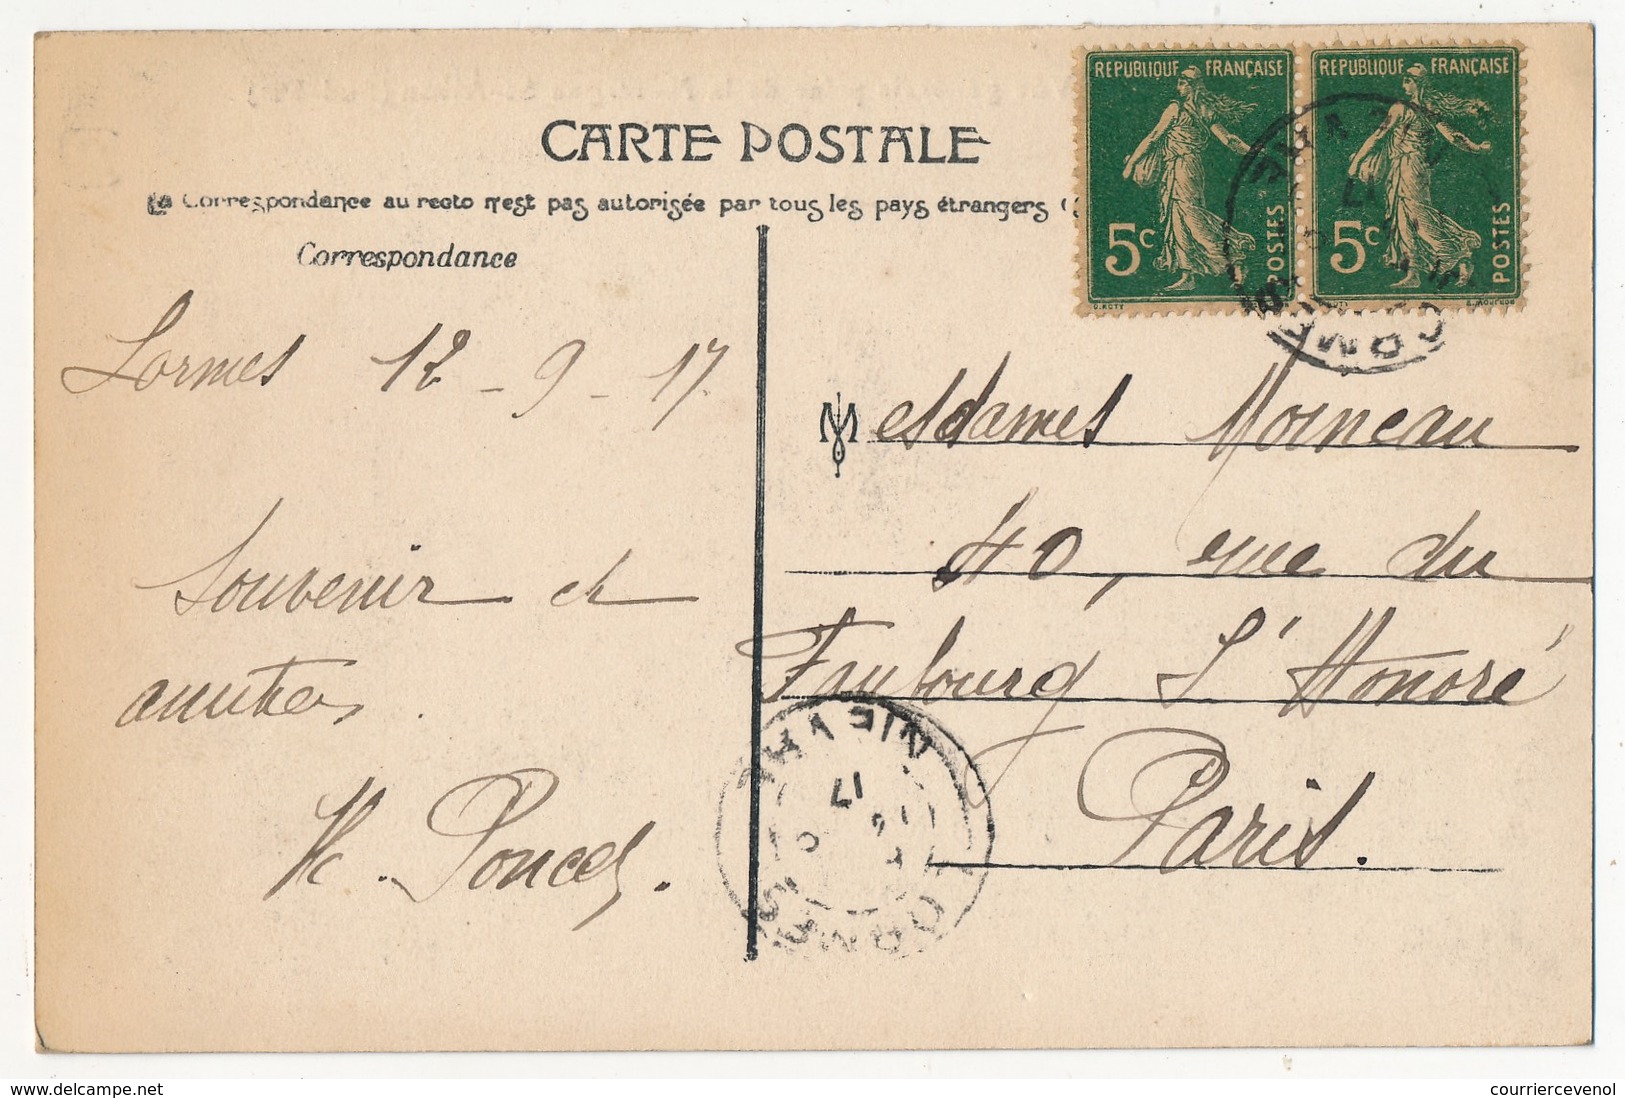 RÉPUBLIQUE FRANÇAISE
5c
POSTES
O. ROTY
RÉPUBLIQUE FRANÇAISE
5c
POSTES
E. MOUCHON
CARTE POSTALE
La Correspondance au recto n'est pas autorisée par tous les pays étrangers (
Correspondance
Lormes 12-9-17
Souvenir et
amitiés.
Mesdames Moineau
40, rue du
Faubourg St Honoré
Paris.
NIEVRE
17
LORMES
courriercevenol